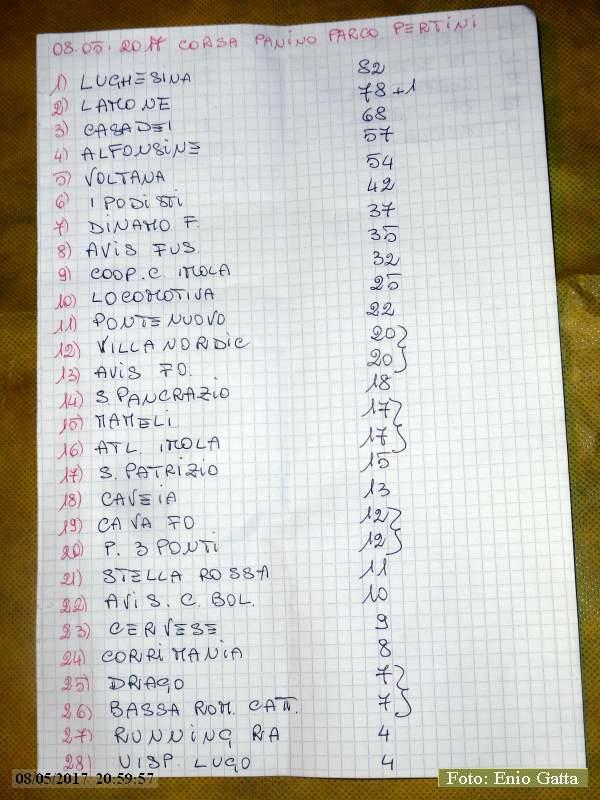 08.05.2017 CORSA PANINO PARCO PERTINI
1) LUGHESINA 82
2) LAMONE 78+1
3) CASADEI 68
4) ALFONSINE 57
5) VOLTANA 54
6) I PODISTI 42
7) DINAMO F. 37
8) AVIS FUS. 35
9) COOP. C. IMOLA 32
10) LOCOMOTIVA 25
11) PONTENUOVO 22
12) VILLA NORDIC 20
13) AVIS FO. 20
14) S. PANCRAZIO 18
15) MAMELI 17
16) ATL. IMOLA 17
17) S. PATRIZIO 15
18) CAVEIA 13
19) CAVA FO 12
20) P. 3 PONTI 12
21) STELLA ROSSA 11
22) AVIS. C. BOL. 10
23) CERVESE 9
24) CORRIMANIA 8
25) DRAGO 7
26) BASSA ROM. CATT. 7
27) RUNNING RA 4
28) UISP. LUGO 4
08/05/2017 20:59:57
Foto: Enio Gatta